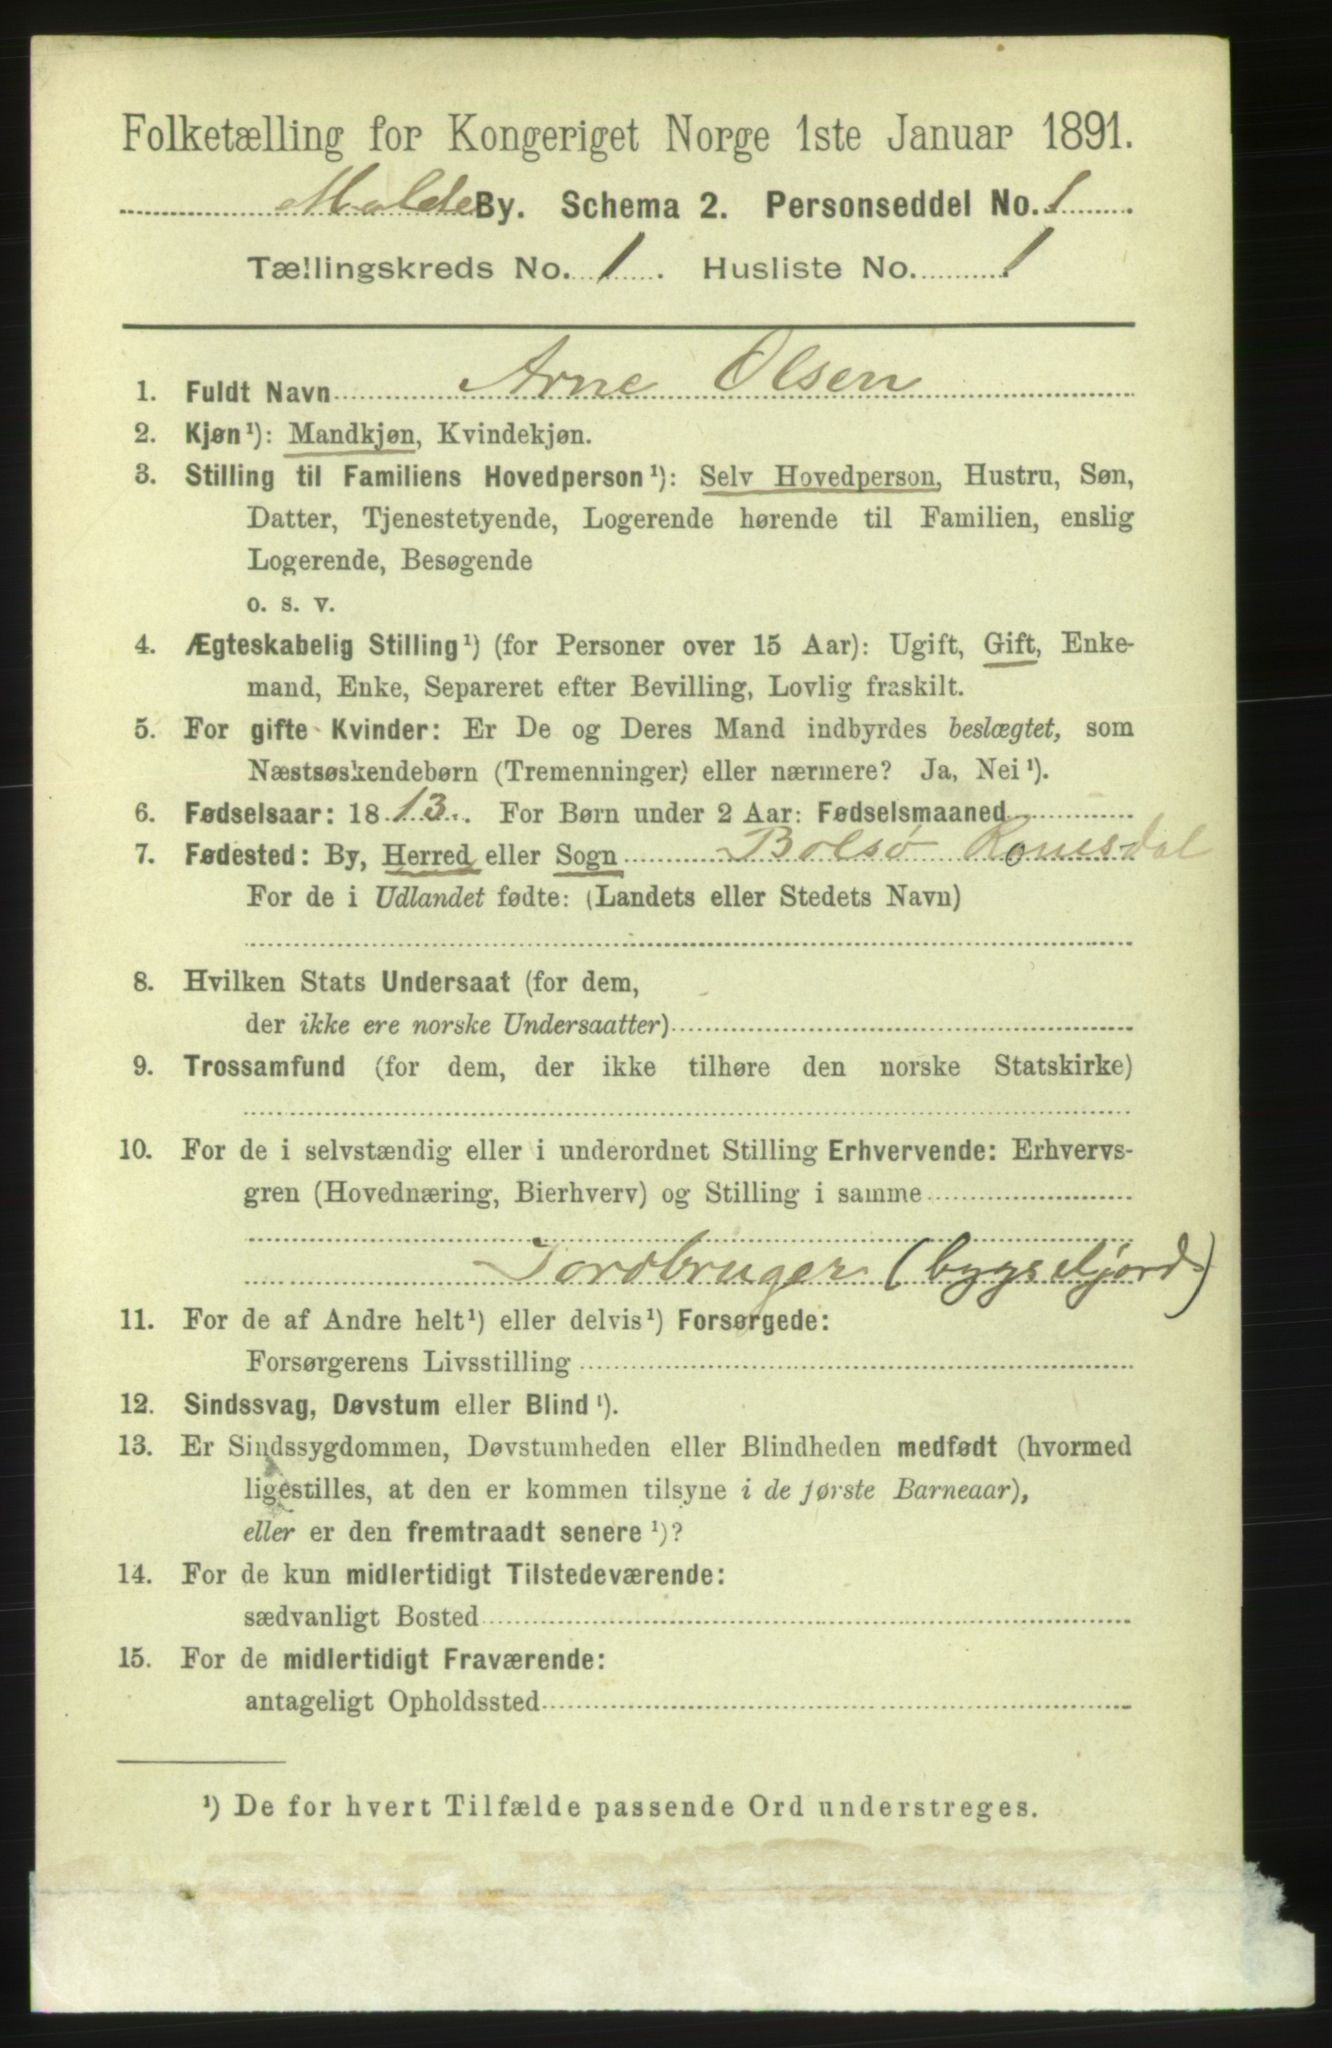 Folketælling for Kongeriget Norge 1ste Januar 1891.
Molde By. Schema 2. Personseddel No. 1
Tællingskreds No. 1. Husliste No. 1
1. Fuldt Navn Arne Olsen
2. Kjøn¹): Mandkjøn, Kvindekjøn.
3. Stilling til Familiens Hovedperson¹): Selv Hovedperson, Hustru, Søn,
Datter, Tjenestetyende, Logerende hørende til Familien, enslig
Logerende, Besøgende
o. s. v.
4. Ægteskabelig Stilling¹) (for Personer over 15 Aar): Ugift, Gift, Enke-
mand, Enke, Separeret efter Bevilling, Lovlig fraskilt.
5. For gifte Kvinder: Er De og Deres Mand indbyrdes beslægtet, som
Næstsøskendebørn (Tremenninger) eller nærmere? Ja, Nei¹).
6. Fødselsaar: 1813. For Børn under 2 Aar: Fødselsmaaned
7. Fødested: By, Herred eller Sogn Bolsø Romsdal
For de i Udlandet fødte: (Landets eller Stedets Navn)
8. Hvilken Stats Undersaat (for dem,
der ikke ere norske Undersaatter)
9. Trossamfund (for dem, der ikke tilhøre den norske Statskirke)
10. For de i selvstændig eller i underordnet Stilling Erhvervende: Erhvervs-
gren (Hovednæring, Bierhverv) og Stilling i samme
Jordbruger (bygseljord)
11. For de af Andre helt¹) eller delvis¹) Forsørgede:
Forsørgerens Livsstilling
12. Sindssvag, Døvstum eller Blind¹).
13. Er Sindssygdommen, Døvstumheden eller Blindheden medfødt (hvormed
ligestilles, at den er kommen tilsyne i de første Barneaar),
eller er den fremtraadt senere¹)?
14. For de kun midlertidigt Tilstedeværende:
sædvanligt Bosted
15. For de midlertidigt Fraværende:
antageligt Opholdssted
¹) De for hvert Tilfælde passende Ord understreges.